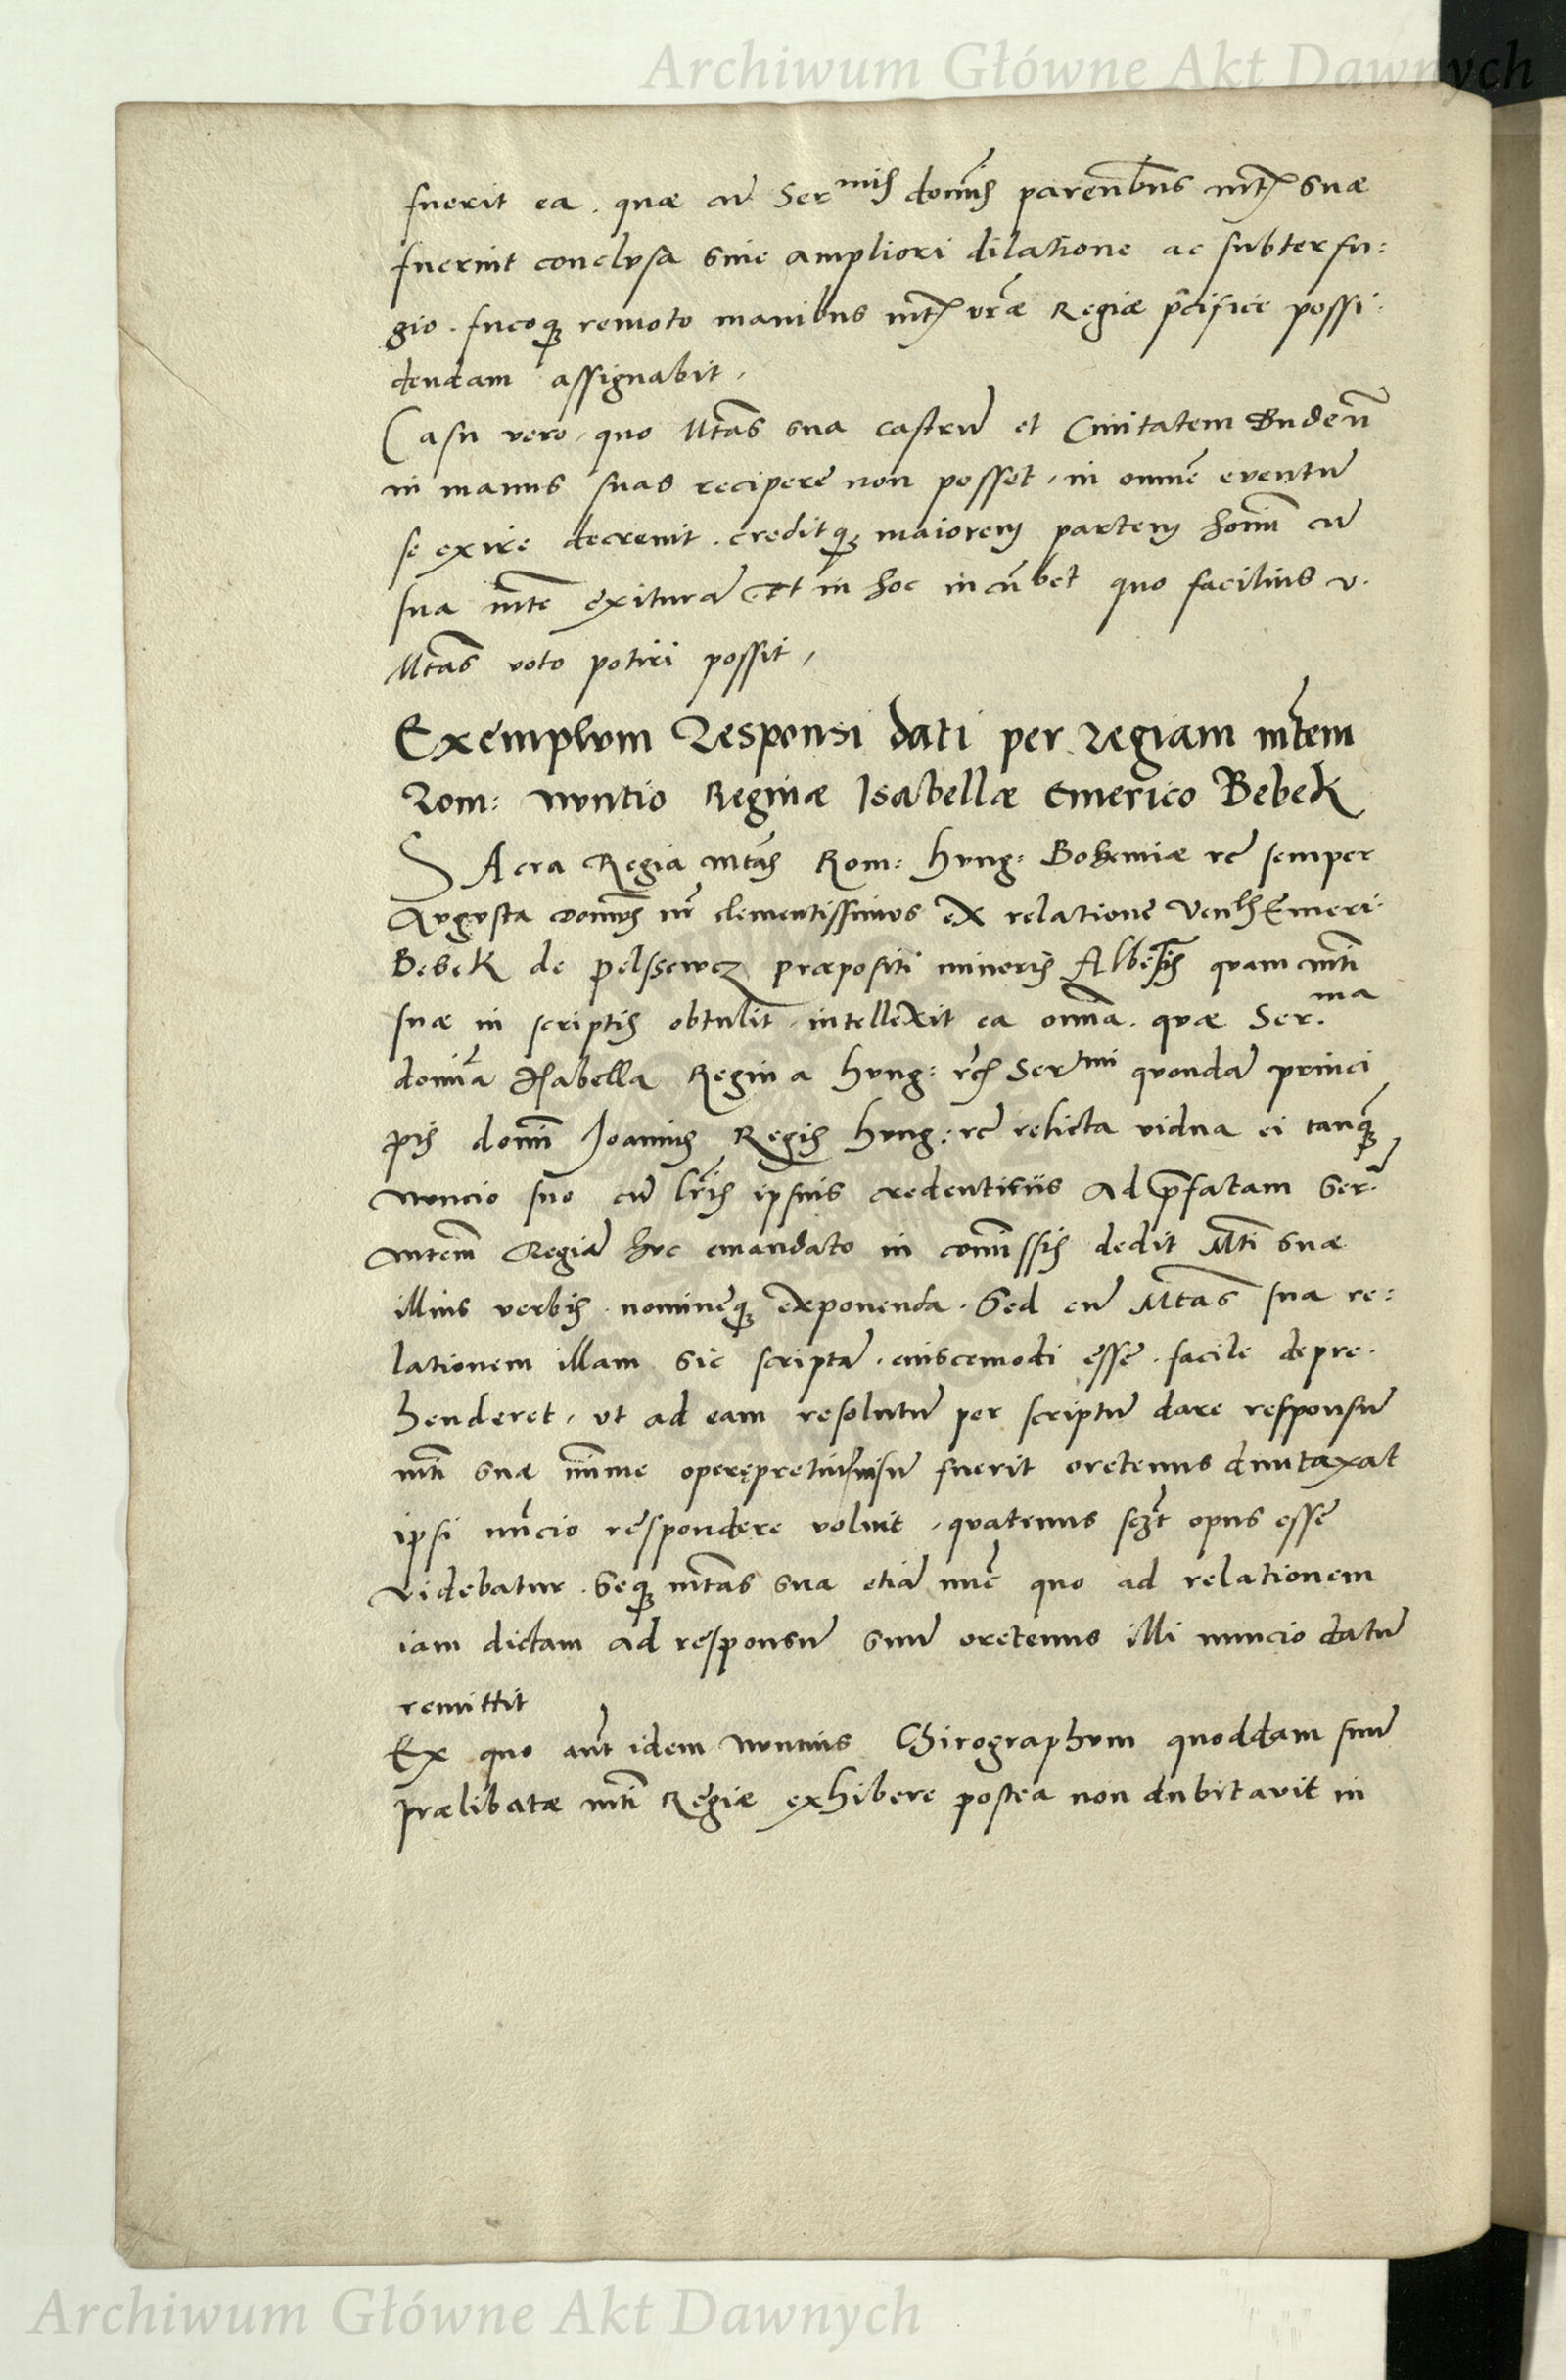 Archiwum Główne Akt Dawnych
fuerit ea. quæ cũ Ser^mis domĩs parentibus mtĩ suæ
fuerint conclusa sine ampliori dilatione ac subterfu:
gio. fucoq; remoto manibus mtĩ vrẽ Regiæ pãcifice possi:
dendam assignabit,
Casu vero, quo Mtas sua castrũ et Ciuitatem Budeñ
in manus suas recipere non posset, in omnẽ eventũ
se exire decreuit. creditq; maiorem partem homĩ cũ
sua mte exiturã Et in hoc incũbet quo facilius v.
Mtas voto potiri possit,
Exemplvm Responsi dati per regiam mtem
Rom: nvntio Reginæ Isabellæ Emerico Bebek
SAcra Regia mtas Rom: Hvng: Bohemiæ rc̃ semper
Avgvsta domĩs nr̃ clementissimvs ex relatione Ven^lis Emeri.
Bebek de pelssewcz præpositi minoris Albeñ quam mti
suæ in scriptis obtulit, intellexit ea omĩa. qvæ Ser.^ma
domĩa Isabella Regina Hvng: rc̃ Ser^mi qvondã princi
pis domĩ Joannis Regis Hvng: rc̃ relicta vidua ei tanq̃
nvncio suo cũ lr̃is ipsius credentiriis Ad p̃fatam Ser.
mtem Regiã hvc emandato in comissis dedit Mti suæ
illius verbis. nomineq; exponenda. Sed cũ Mtas sua re:
lationem illam sic scriptã. eiuscemodi esse. facile depre.
henderet, vt ad eam resolutũ per scriptũ dare responsũ
mti suæ minime operępretiũ visũ fuerit oretenus duntaxat
ipsi nũcio respondere voluit, qvatenus sc̃t opus esse
videbatur. Seq; mtas sua etiã nũc quo ad relationem
iam dictam ad responsũ suũ oretenus illi nuncio datũ
remittit
Ex quo aut̃ idem nvntius Chirographvm quoddam suũ
prælibatæ mti Regiæ exhibere postea non dubitavit in
Archiwum Główne Akt Dawnych